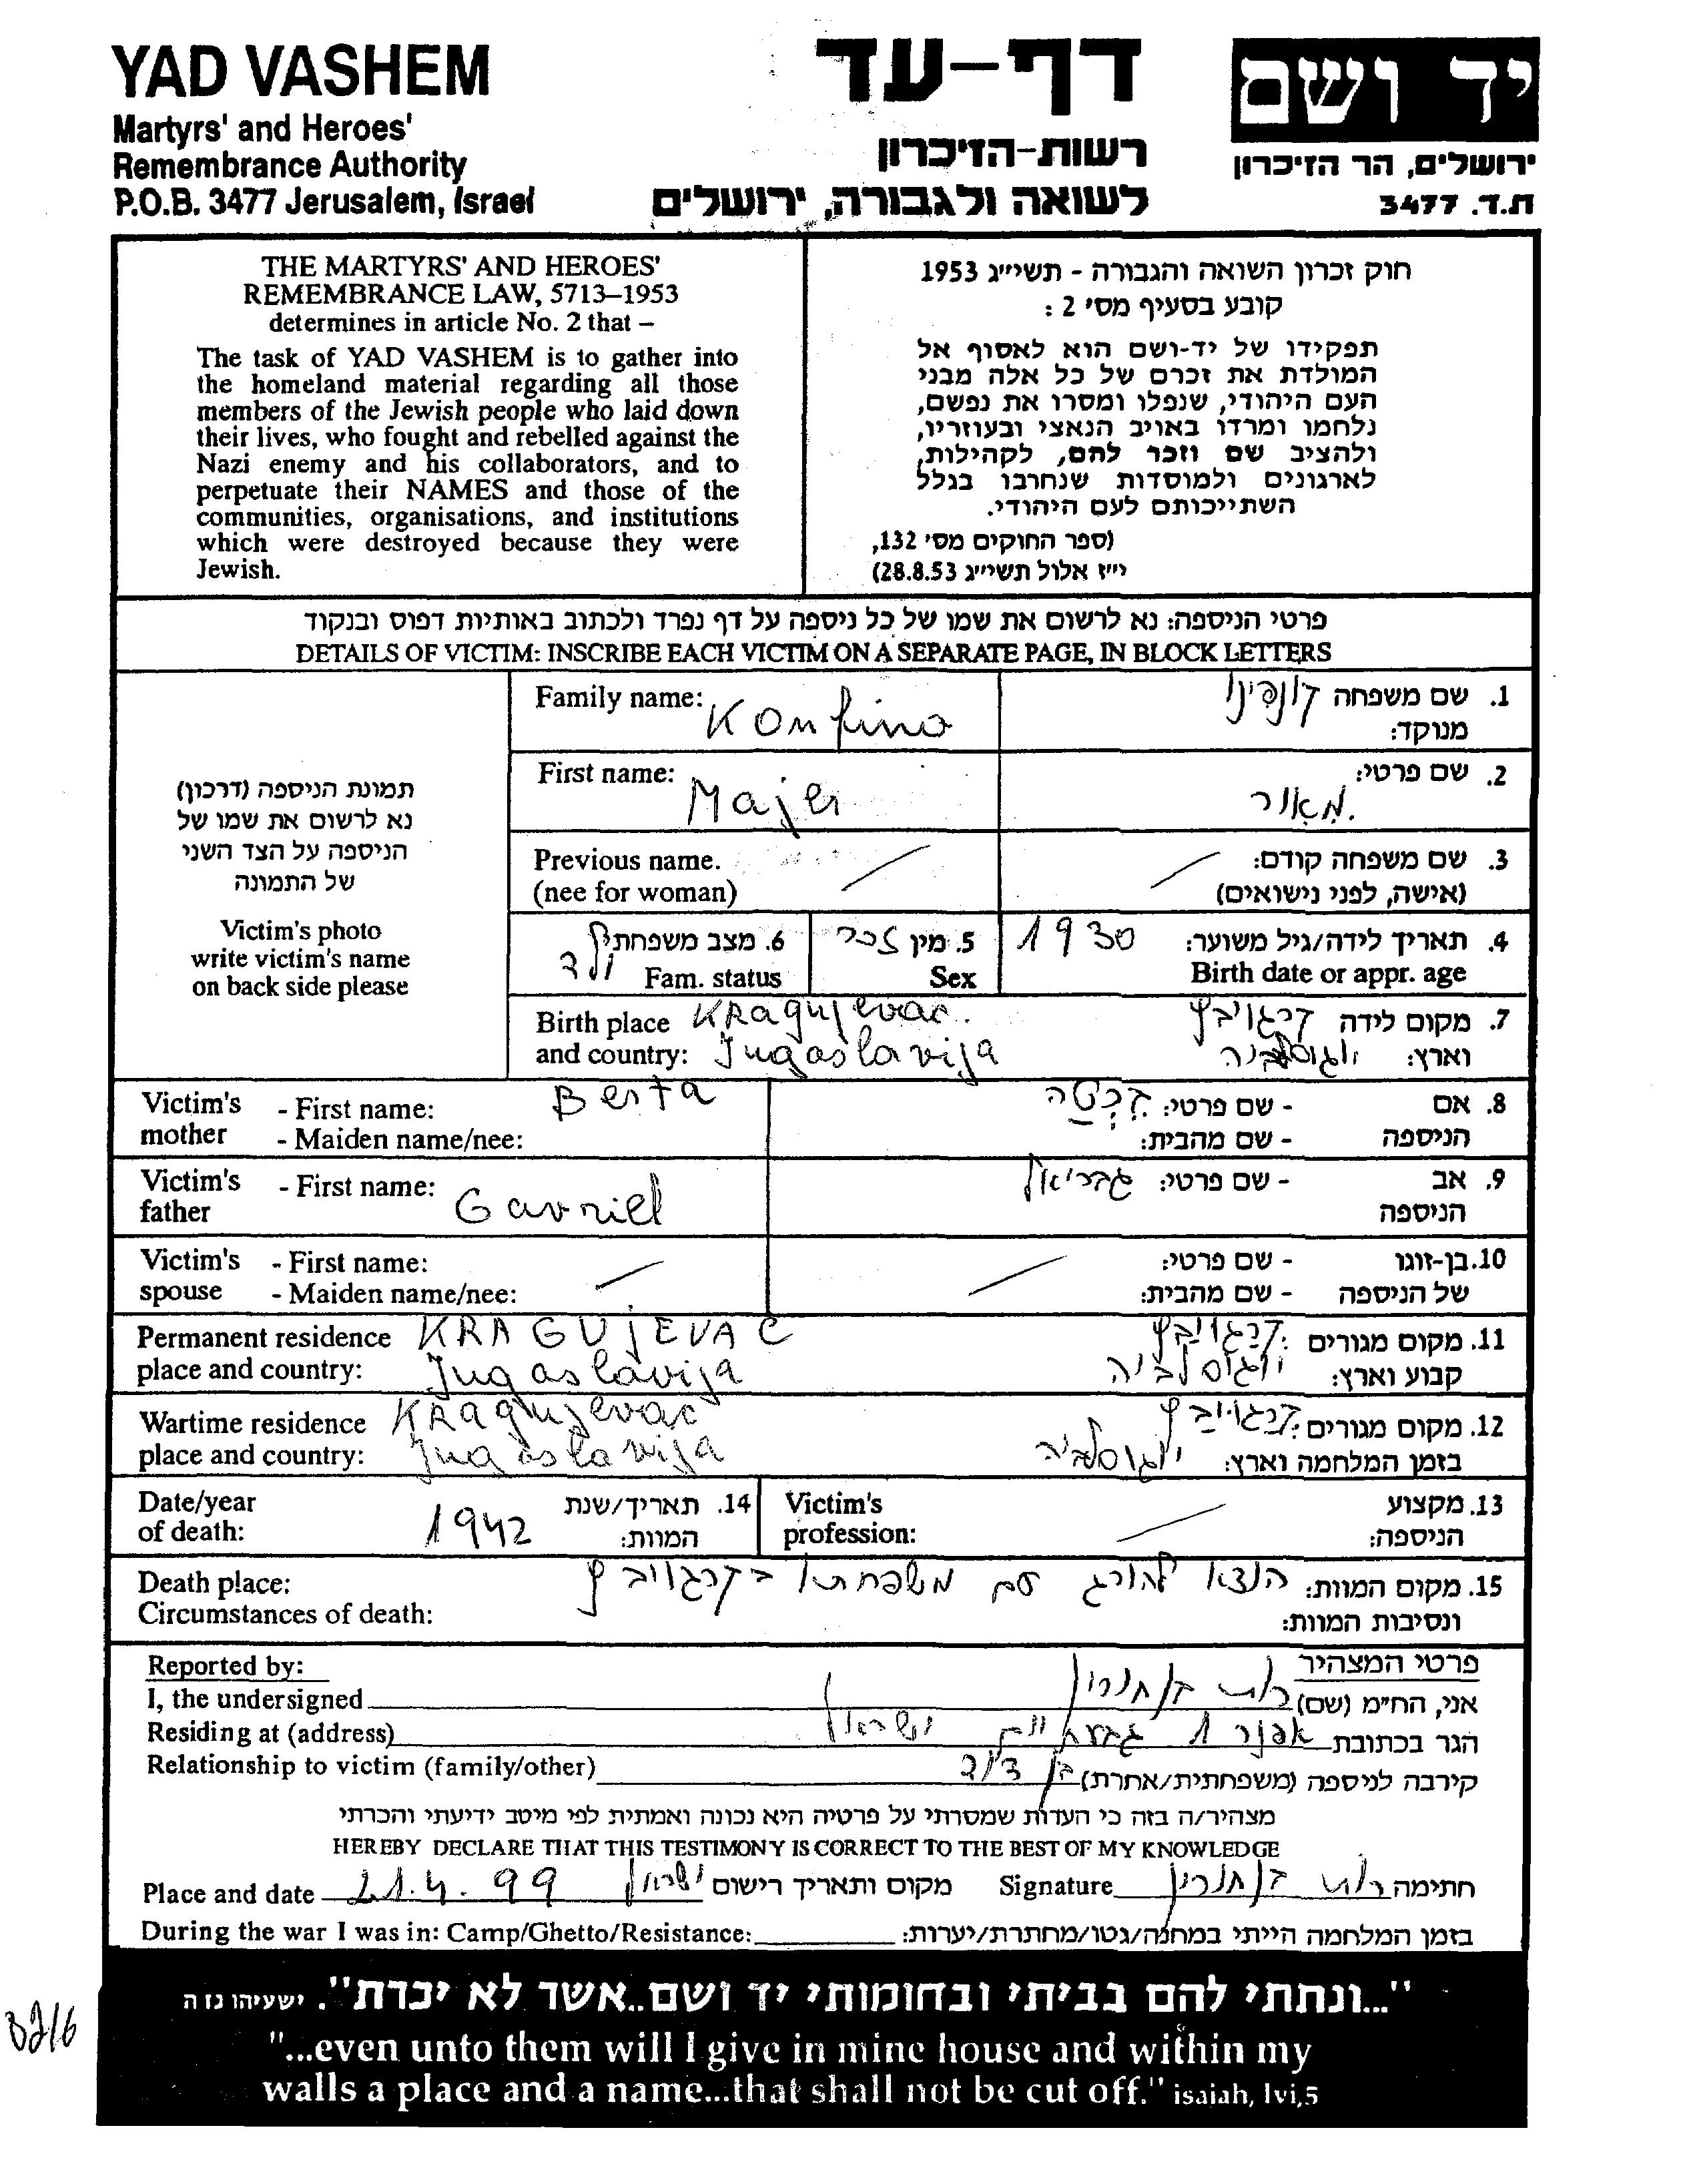 YAD VASHEM
Martyrs' and Heroes'
Remembrance Authority
P.O.B. 3477 Jerusalem, Israel
דף-עד
רשות-הזיכרון
לשואה ולגבורה, ירושלים
יד ושם
ירושלים, הר הזיכרון
ת.ד. 3477
THE MARTYRS' AND HEROES'
REMEMBRANCE LAW, 5713–1953
determines in article No. 2 that –
The task of YAD VASHEM is to gather into
the homeland material regarding all those
members of the Jewish people who laid down
their lives, who fought and rebelled against the
Nazi enemy and his collaborators, and to
perpetuate their NAMES and those of the
communities, organisations, and institutions
which were destroyed because they were
Jewish.
חוק זכרון השואה והגבורה - תשי״ג 1953
קובע בסעיף מס׳ 2 :
תפקידו של יד-ושם הוא לאסוף אל
המולדת את זכרם של כל אלה מבני
העם היהודי, שנפלו ומסרו את נפשם,
נלחמו ומרדו באויב הנאצי ובעוזריו,
ולהציב שם וזכר להם, לקהילות,
לארגונים ולמוסדות שנחרבו בגלל
השתייכותם לעם היהודי.
(ספר החוקים מס׳ 132,
י״ז אלול תשי״ג 28.8.53)
פרטי הניספה: נא לרשום את שמו של כל ניספה על דף נפרד ולכתוב באותיות דפוס ובנקוד
DETAILS OF VICTIM: INSCRIBE EACH VICTIM ON A SEPARATE PAGE, IN BLOCK LETTERS
תמונת הניספה (דרכון)
נא לרשום את שמו של
הניספה על הצד השני
של התמונה
Victim's photo
write victim's name
on back side please
Family name: Konfino
1. שם משפחה קונפינו
מנוקד:
First name: Majer
2. שם פרטי: מאור
Previous name.
(nee for woman)
3. שם משפחה קודם:
(אישה, לפני נישואים)
6. מצב משפחתי ילד
Fam. status
5. מין זכר
Sex
4. תאריך לידה/גיל משוער: 1930
Birth date or appr. age
Birth place Kragujevac.
and country: Jugoslavija
7. מקום לידה קרגויבץ
וארץ: יוגוסלביה
Victim's - First name: Berta
mother - Maiden name/nee:
8. אם - שם פרטי: ברטה
הניספה - שם מהבית:
Victim's - First name: Gavriel
father
9. אב - שם פרטי: גבריאל
הניספה
Victim's - First name:
spouse - Maiden name/nee:
10. בן-זוגו - שם פרטי:
של הניספה - שם מהבית:
Permanent residence KRAGUJEVAC
place and country: Jugoslavija
11. מקום מגורים: קרגויבץ
קבוע וארץ: יוגוסלביה
Wartime residence Kragujevac
place and country: Jugoslavija
12. מקום מגורים: קרגויבץ
בזמן המלחמה וארץ: יוגוסלביה
Date/year
of death: 1942
14. תאריך/שנת
המוות:
Victim's
profession:
13. מקצוע
הניספה:
Death place:
Circumstances of death:
15. מקום המוות: הוצא להורג עם משפחתו בקרגויבץ
ונסיבות המוות:
Reported by:
פרטי המצהיר
I, the undersigned
אני, הח״מ (שם) רות
Residing at (address)
הגר בכתובת אבנר 1 גבעתיים ישראל
Relationship to victim (family/other)
קירבה לניספה (משפחתית/אחרת) בן דוד
מצהיר/ה בזה כי העדות שמסרתי על פרטיה היא נכונה ואמתית לפי מיטב ידיעתי והכרתי
HEREBY DECLARE THAT THIS TESTIMONY IS CORRECT TO THE BEST OF MY KNOWLEDGE
Place and date 21.4.99 ישראל מקום ותאריך רישום
Signature רות חתימה
During the war I was in: Camp/Ghetto/Resistance:
בזמן המלחמה הייתי במחנה/גטו/מחתרת/יערות:
"...ונתתי להם בביתי ובחומותי יד ושם..אשר לא יכרת". ישעיהו נו ה
"...even unto them will I give in mine house and within my
walls a place and a name...that shall not be cut off." isaiah, lvi,5